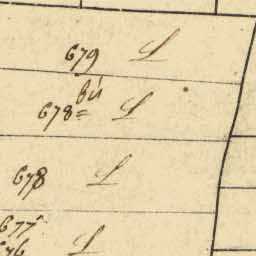 679 L
bú
678= L
678 L
677
676 L